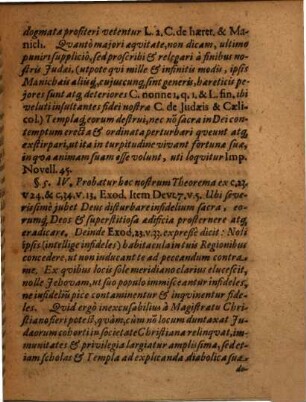 dogmata profiteri vetentur L. 2. C. de hæret. & Ma-
nich. Quantò majori aqvitate, non dicam, ultimo
puniri supplicio, sed proscribi & relegari à finibus no-
stris Judæi, (utpote qvi mille & infinitis modis, ipsis
Manichæis aliisq, cujuscunq, sint generis, hæreticis pe-
jores sunt atq, deteriores C. nonne 1. q. 1. & L. fin. ibi
veluti insultantes fidei nostræ C. de Judæis & Cæli-
col.) Templaq, eorum destrui, nec nō sacra in Dei con-
temptum erecta & ordinata perturbari qveunt atq,
exstirpari, ut ita in turpitudine vivant fortuna suæ,
in qva animam suam esse volunt, uti loqvitur Imp.
Novell. 45.
§. 5. IV. Probatur hoc nostrum Theorema ex c. 22.
v. 24. & c. 34. v. 13. Exod. Item Deut. 7. v. 5. Ubi seve-
rissimè jubet Deus disturbare infidelium sacra, eo-
rumq, Deos & superstitiosa ædificia prosternere atq,
eradicare. Deinde Exod. 23. v. 33. expressè dicit: Noli
ipsis (intellige infideles) habitacula in tuis Regionibus
concedere, ut non inducant te ad peccandum contra
me. Ex qvibus locis sole meridiano clarius elucescit,
nolle Jehovam, ut suo populo immisceantur infideles,
ne infidelium pice contaminentur & inqvinentur fide-
les. Quid ergò inexcusabilius à Magistratu Chri-
stiano fieri potest, qvàm, cùm nō locum duntaxat Ju-
dæorum cohorti in societate Christiana relinqvat, im-
munitates & privilegia largiatur amplissima, sed et-
iam scholas & Templa ad explicanda diabolica suæ
do-